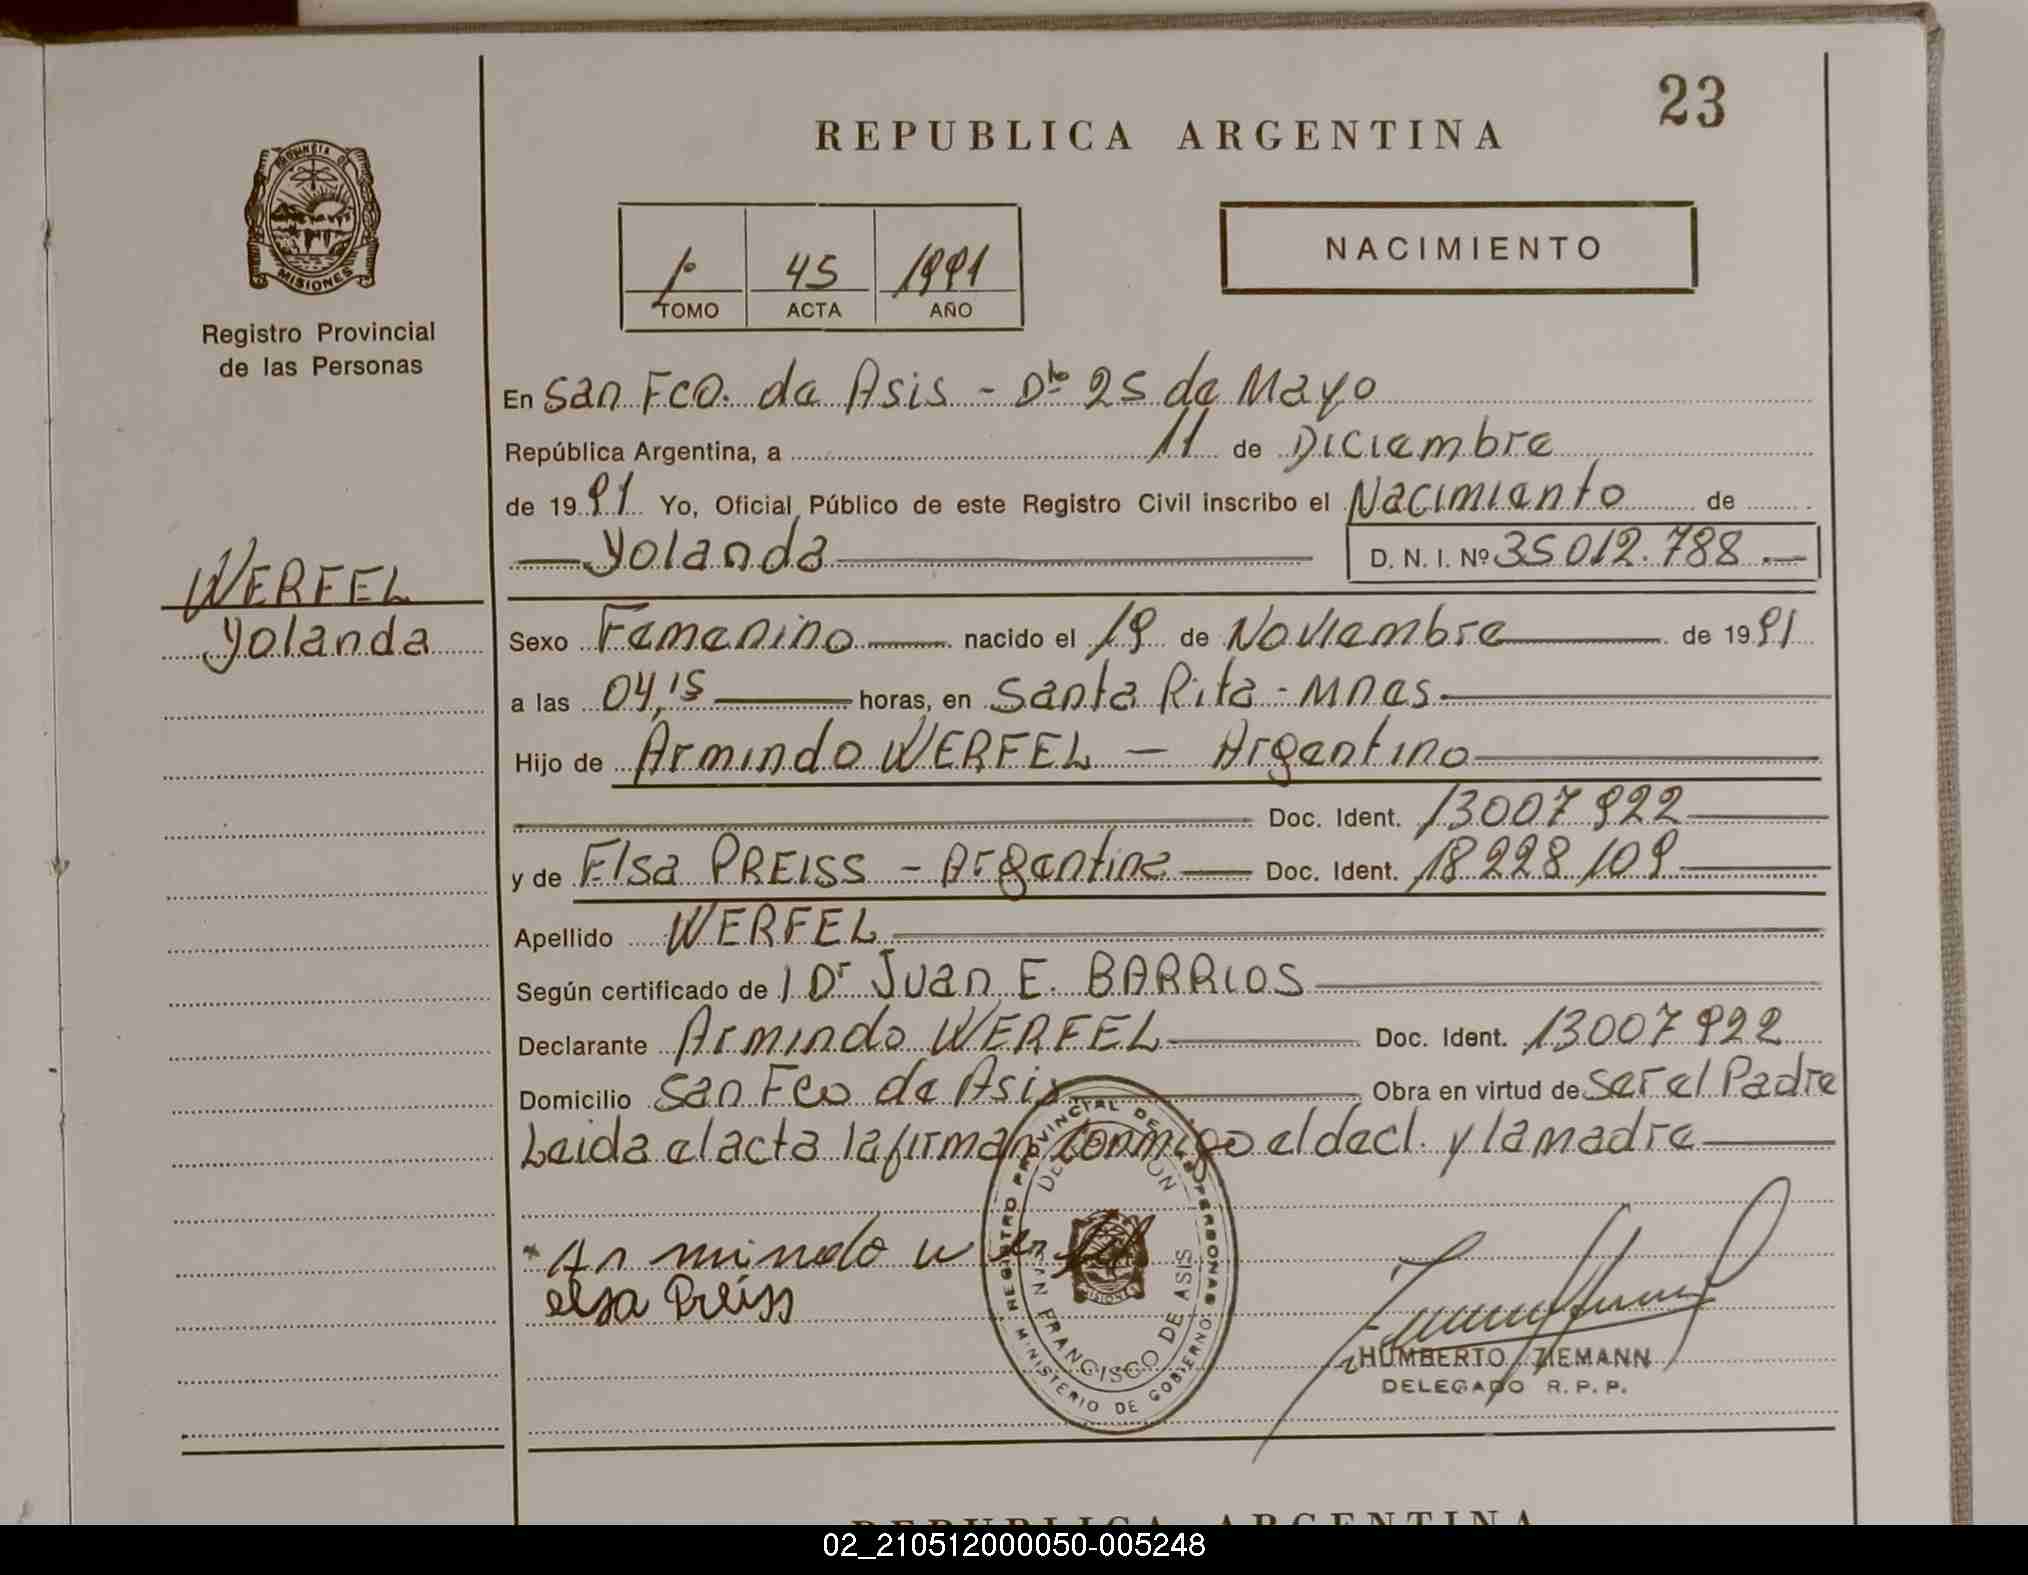 23
REPUBLICA ARGENTINA
PROVINCIA D
MISIONES
Registro Provincial
de las Personas
1º 45 1991
TOMO ACTA AÑO
NACIMIENTO
En San Fco. de Asis - Dto 25 de Mayo
República Argentina, a 11 de Diciembre
de 1991 Yo, Oficial Público de este Registro Civil inscribo el Nacimiento de
Yolanda D. N. I. Nº 35012.788.-
WERFEL
Yolanda
Sexo Femenino nacido el 19 de Noviembre de 1991
a las 04,15 horas, en Santa Rita - Mnes
Hijo de Armindo WERFEL - Argentino
Doc. Ident. 13007922
y de Elsa PREISS - Argentina Doc. Ident. 18228109
Apellido WERFEL
Según certificado de Dr Juan E. BARRIOS
Declarante Armindo WERFEL Doc. Ident. 13007922
Domicilio San Fco de Asis Obra en virtud de ser el Padre
Leida el acta la firman conmigo el decl. y la madre
Armindo Werfel
elsa Preiss
REGISTRO PROVINCIAL DE LAS PERSONAS
DELEGACION
SAN FRANCISCO DE ASIS
MINISTERIO DE GOBIERNO
MISIONES
HUMBERTO ZIEMANN
DELEGADO R. P. P.
REPUBLICA ARGENTINA
02_210512000050-005248